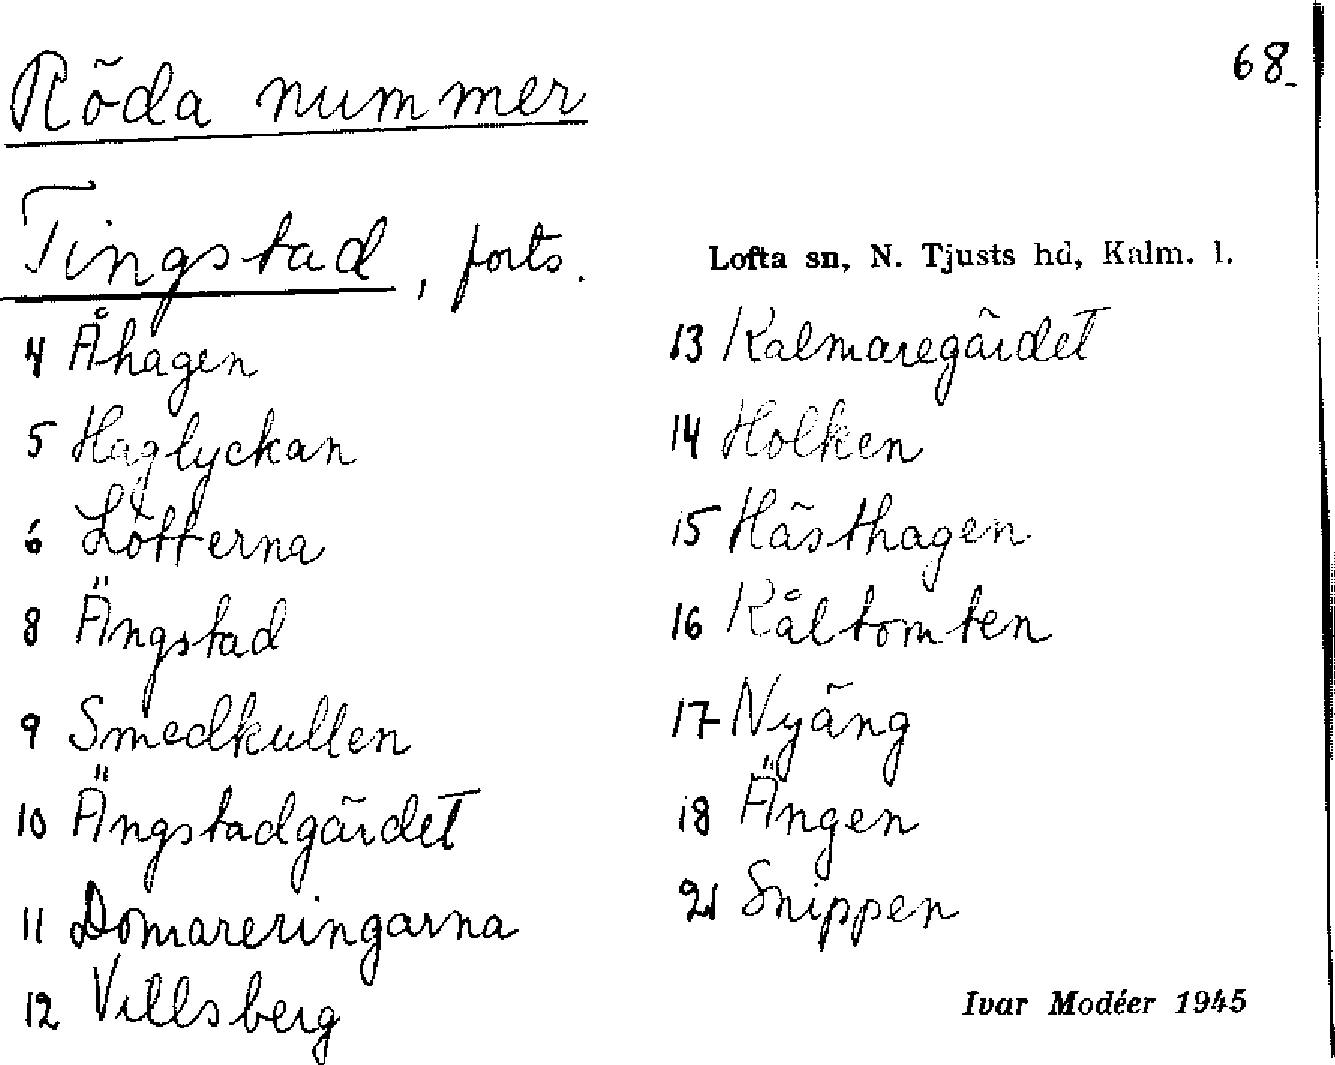 68.
Röda nummer
Tingstad, forts.
Lofta sn, N. Tjusts hd, Kalm. l.
4 Åhagen
5 Haglyckan
6 Lötterna
8 Ängstad
9 Smedkullen
10 Ängstadgärdet
11 Domareringarna
12 Villsberg
13 Kalmaregärdet
14 Holken
15 Hästhagen
16 Kåltomten
17 Nyäng
18 Ängen
21 Snippen
Ivar Modéer 1945